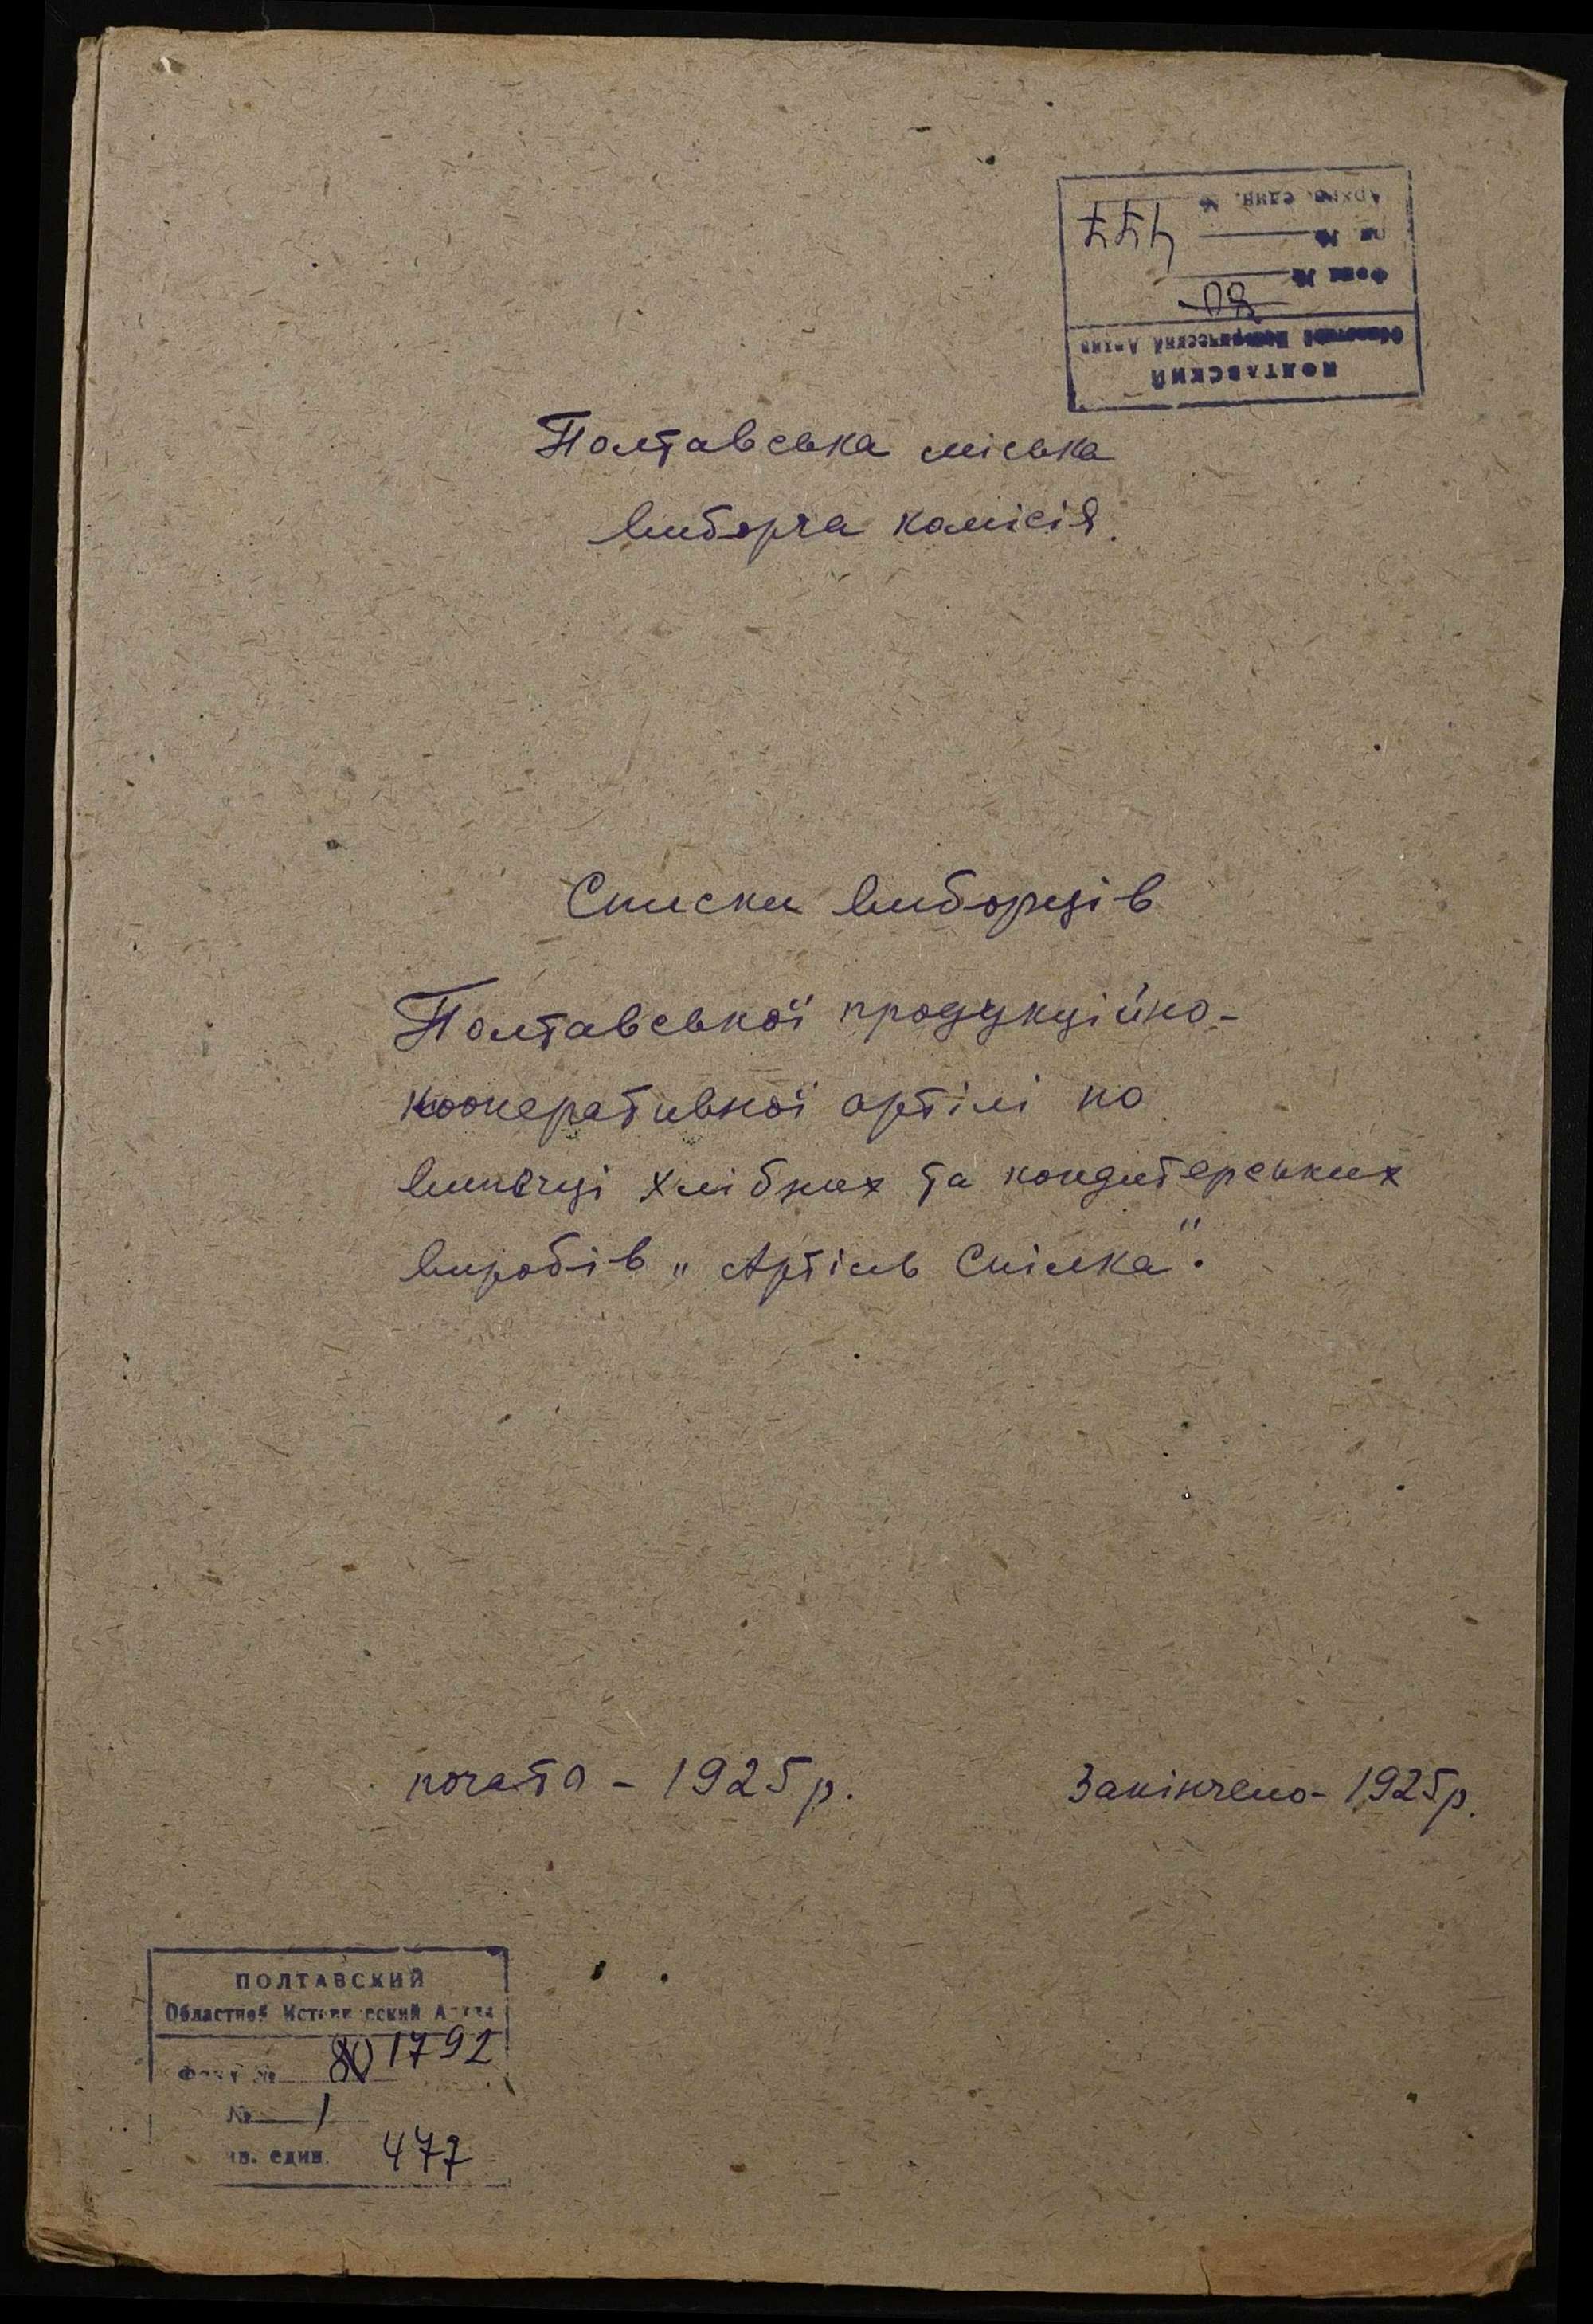 ПОЛТАВСКИЙ
Областной Исторический Архив
Фонд № 80
оп. №
Архив. един. № 477
Полтавська міська
виборча комісія.
Списки виборців
Полтавської продукційно-
кооперативної артілі по
випечці хлібних та кондитерських
виробів „Артіль Спілка".
почато - 1925 р.
Закінчено - 1925 р.
ПОЛТАВСКИЙ
Областной Исторический Архив
Фонд № 80 1792
№ 1
ив. един. 477